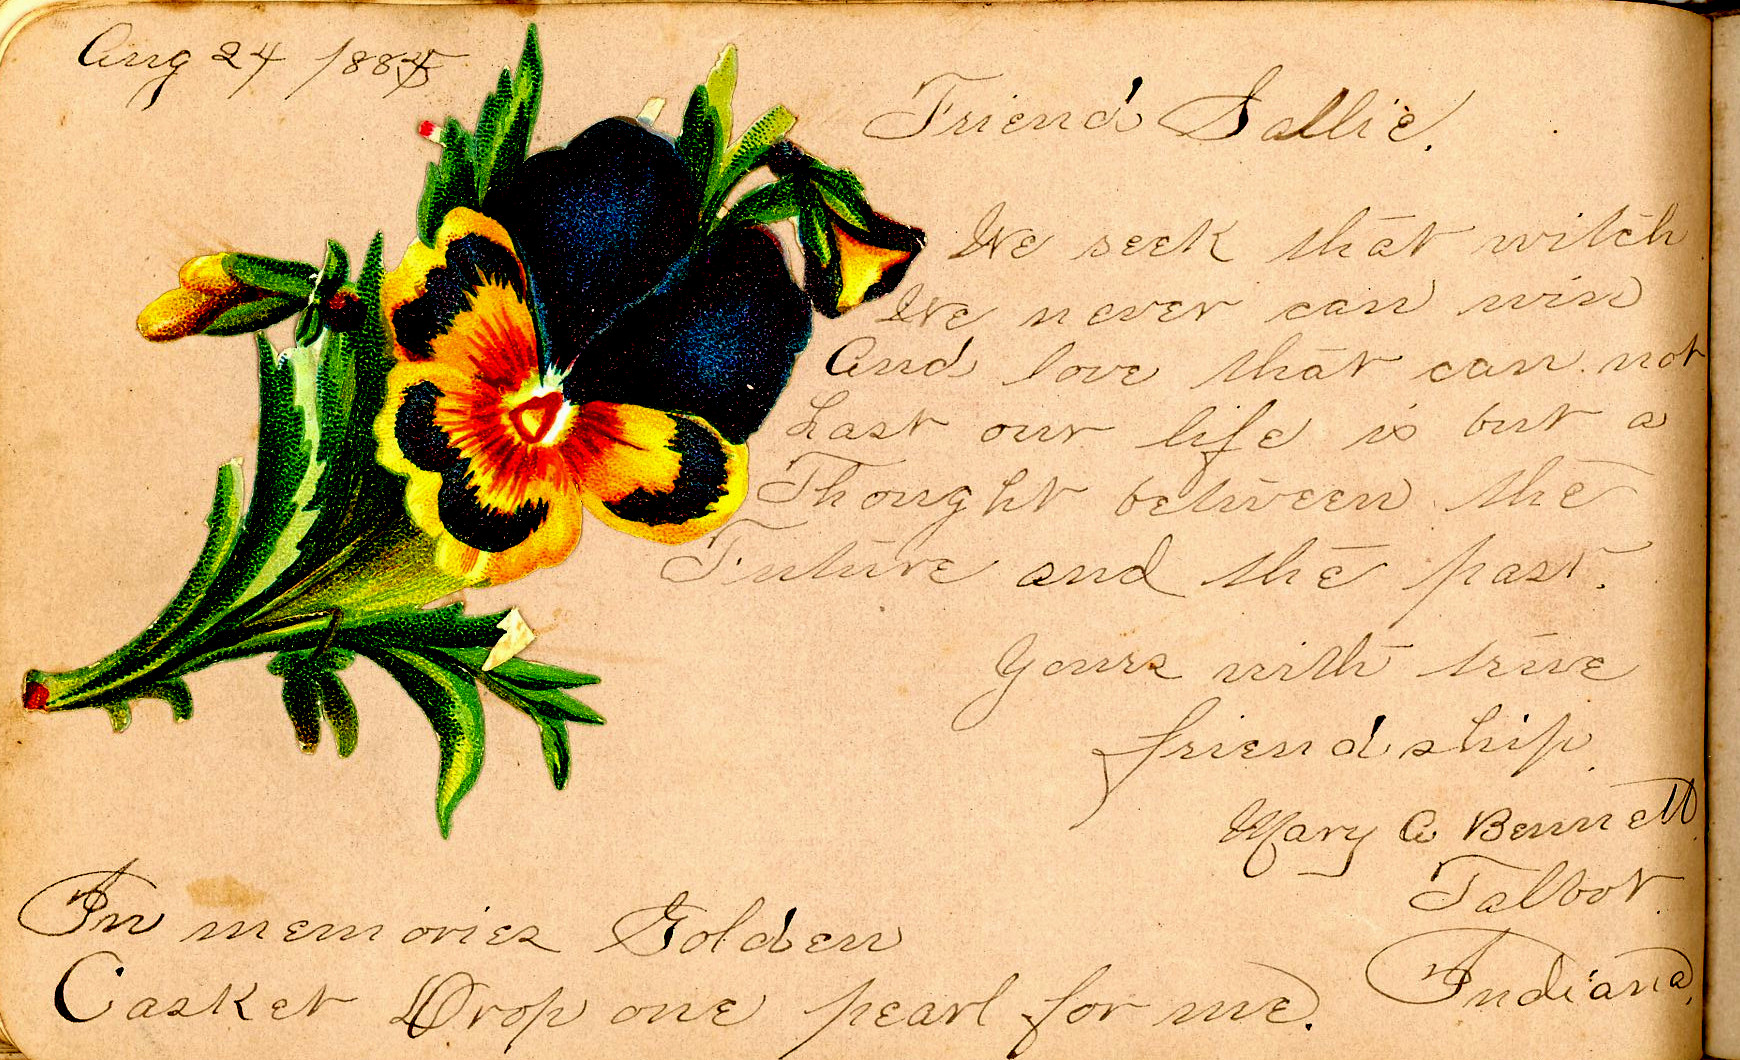 Aug 24 188
Friend Sallie.
We seek that witch
We never can win
And love that can not
Last our life is but a
Thought between the
Future and the past.
Yours with true
friendship
Mary A Bennett
Talbot.
Indiana.
In memories Golden
Casket Drop one pearl for me.